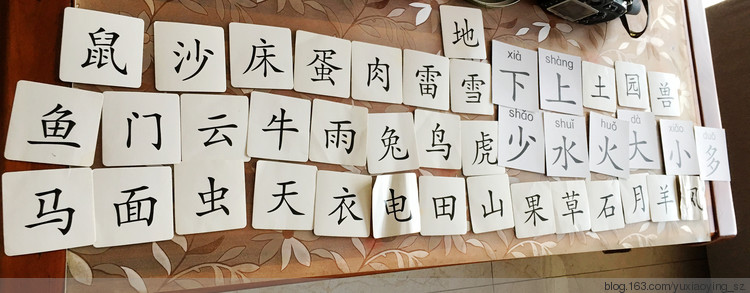 地
xià shàng
鼠 沙 床 蛋 肉 雷 雪 下 上 土 园 兽
shǎo shuǐ huǒ dà xiǎo duō
鱼 门 云 牛 雨 兔 鸟 虎 少 水 火 大 小 多
马 面 虫 天 衣 电 田 山 果 草 石 月 羊 风
blog.163.com/yuxiaoying_sz